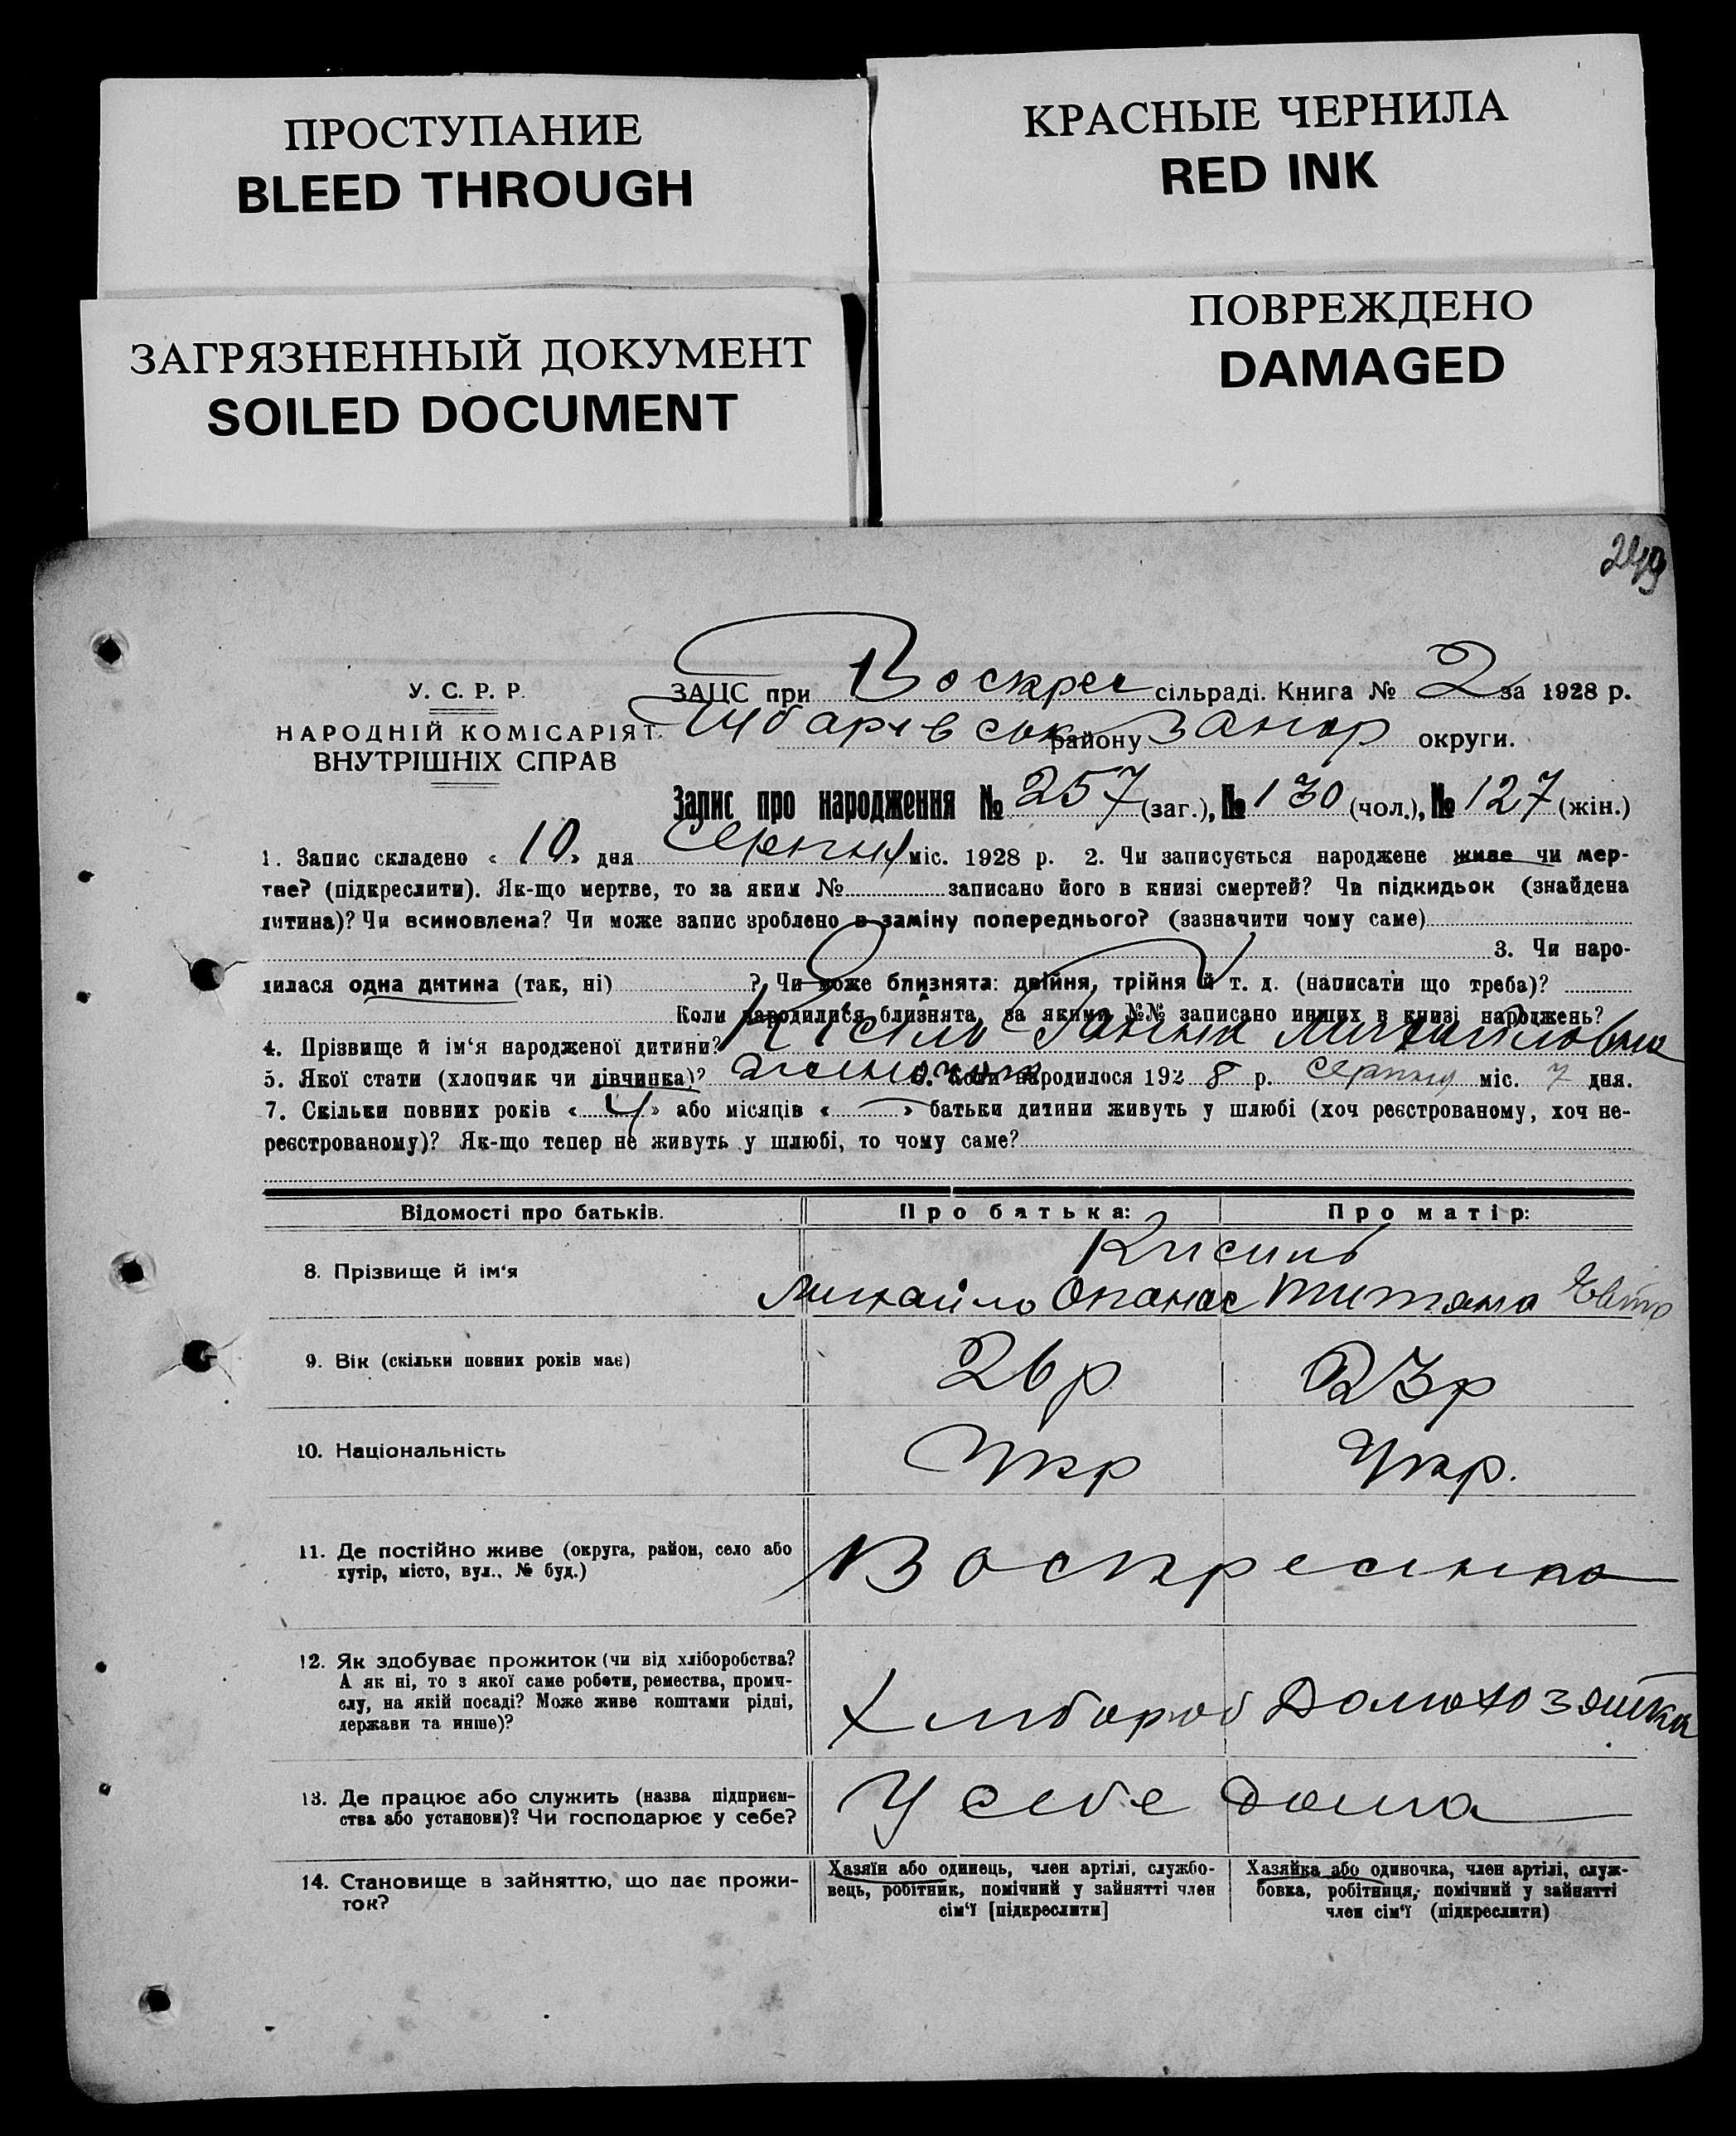 ПРОСТУПАНИЕ
BLEED THROUGH
КРАСНЫЕ ЧЕРНИЛА
RED INK
ЗАГРЯЗНЕННЫЙ ДОКУМЕНТ
SOILED DOCUMENT
ПОВРЕЖДЕНО
DAMAGED
249
У. С. Р. Р.
НАРОДНІЙ КОМІСАРІЯТ
ВНУТРІШНІХ СПРАВ
ЗАЦС при Воскрес сільраді. Книга № 2 за 1928 р.
Чубарівськ району Запор округи.
Запис про народження № 257 (заг.), № 130 (чол.), № 127 (жін.)
1. Запис складено « 10 » дня Серпня міс. 1928 р. 2. Чи записується народжене живе чи мер-
тве? (підкреслити). Як-що мертве, то за яким № записано його в книзі смертей? Чи підкидьок (знайдена
дитина)? Чи всиновлена? Чи може запис зроблено в заміну попереднього? (зазначити чому саме)
3. Чи наро-
дилася одна дитина (так, ні) ? Чи може близнята: двійня, трійня й т. д. (написати що треба)?
Коли народилися близнята, за якими №№ записано инших в книзі народжень?
4. Прізвище й ім'я народженої дитини? Кісіль Ганна Михайловна
5. Якої статі (хлопчик чи дівчинка)? 6. Коли народилося 1928 р. Серпня міс. 7 дня.
7. Скільки повних років « 4 » або місяців « — » батьки дитини живуть у шлюбі (хоч реєстрованому, хоч не-
реєстрованому)? Як-що тепер не живуть у шлюбі, то чому саме?
Відомості про батьків. Про батька: Про матір:
8. Прізвище й ім'я Кисиль
Михайло Опанас Титяна
9. Вік (скільки повних років має) 26 р 23 р
10. Національність Укр Укр.
11. Де постійно живе (округа, район, село або
хутір, місто, вул., № буд.) Воскресинка
12. Як здобуває прожиток (чи від хліборобства?
А як ні, то з якої саме роботи, ремества, проми-
слу, на якій посаді? Може живе коштами рідні,
держави та инше)? Хлибороб Домохозяйка
13. Де працює або служить (назва підприєм-
ства або установи)? Чи господарює у себе? У себе дома
14. Становище в зайняттю, що дає прожи-
ток?
Хазяїн або одинець, член артілі, службо-
вець, робітник, помічний у зайнятті член
сім'ї [підкреслити]
Хазяйка або одиночка, член артілі, служ-
бовка, робітниця, помічний у зайнятті
член сім'ї (підкреслити)